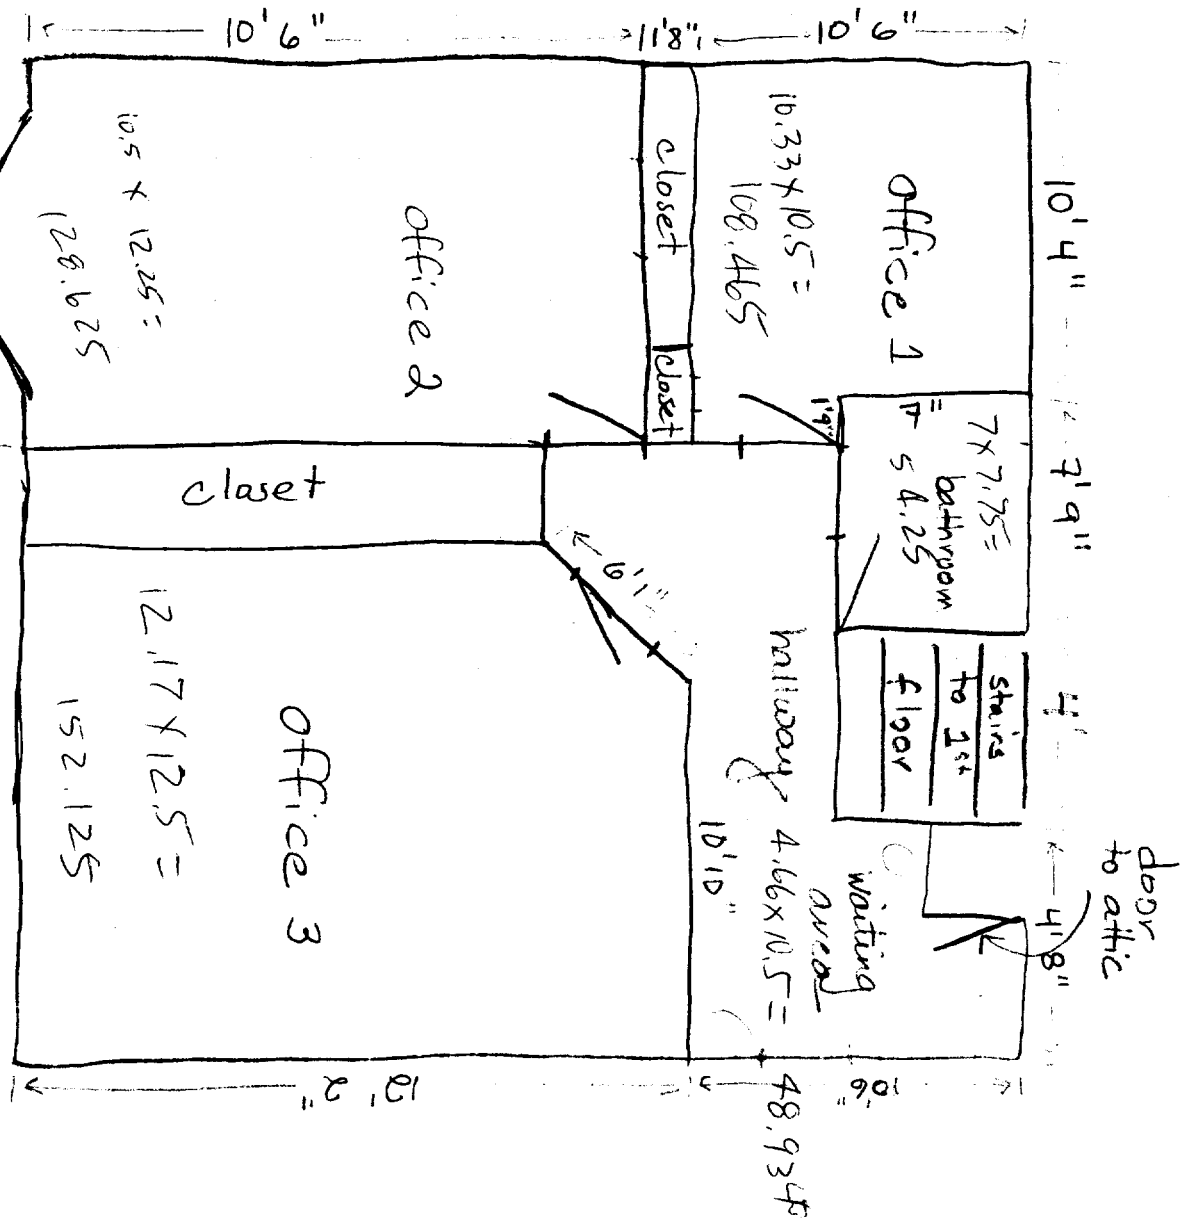 10'6"
1'8"
10'6"
10'4"
7'9"
4'
4'8"
door
to attic
office 1
10.33x10.5=
108.465
closet
closet
office 2
10.5 x 12.25=
128.625
1'9"
7"
7x7.75=
bathroom
54.25
stairs
to 1st
floor
closet
6'1"
hallway 4.66x10.5= 48.934
waiting
area
10'10"
office 3
12.17x12.5=
152.125
12'2"
10'6"